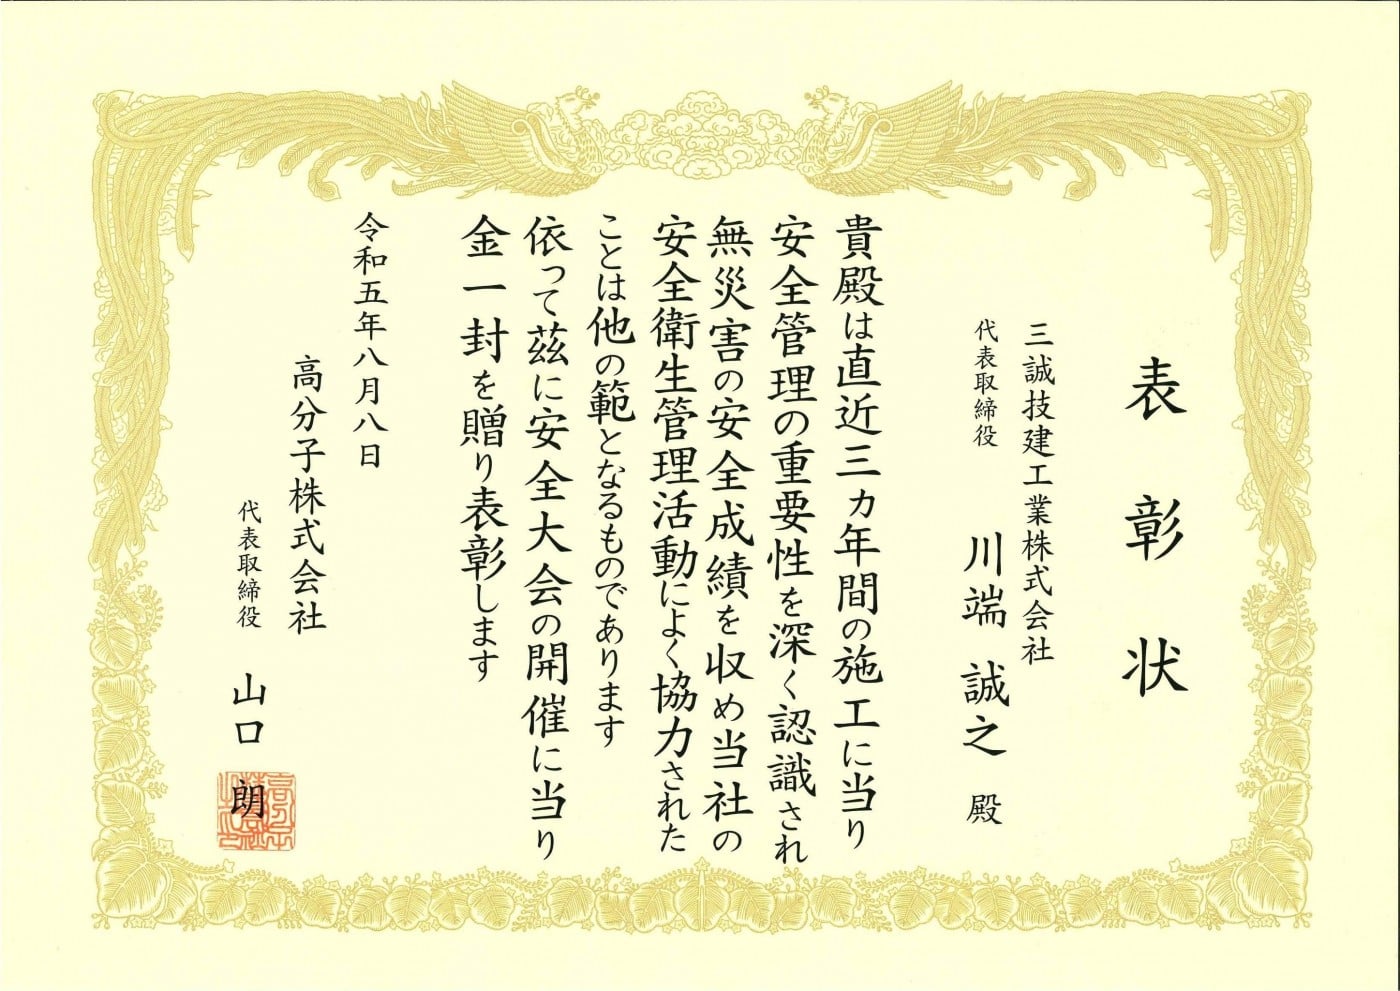 表彰状
三誠技建工業株式会社
代表取締役 川端 誠之 殿
貴殿は直近三カ年間の施工に当り
安全管理の重要性を深く認識され
無災害の安全成績を収め当社の
安全衛生管理活動によく協力された
ことは他の範となるものであります
依って茲に安全大会の開催に当り
金一封を贈り表彰します
令和五年八月八日
高分子株式会社
代表取締役 山口 朗